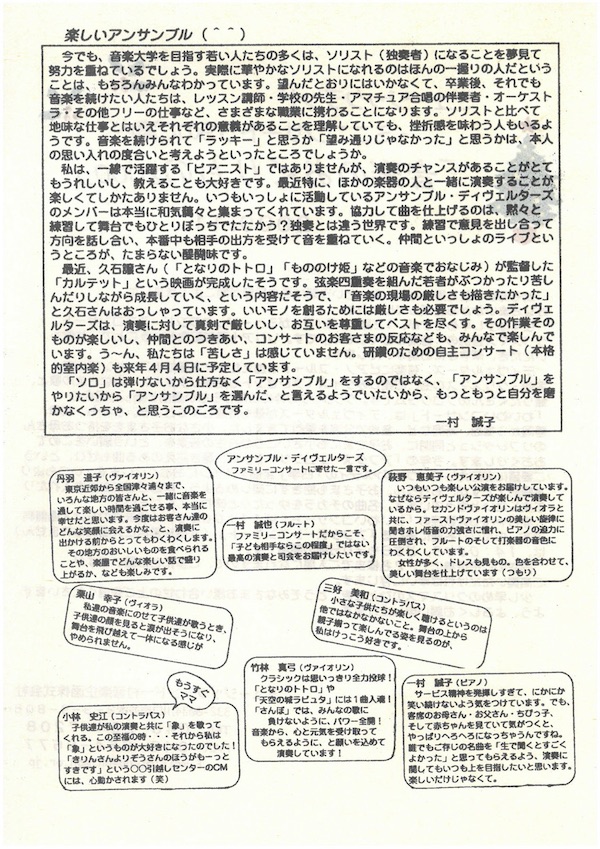 楽しいアンサンブル（＾＾）
今でも、音楽大学を目指す若い人たちの多くは、ソリスト（独奏者）になることを夢見て
努力を重ねているでしょう。実際に華やかなソリストになれるのはほんの一握りの人だという
ことは、もちろんみんなわかっています。望んだとおりにはいかなくて、卒業後、それでも
音楽を続けたい人たちは、レッスン講師・学校の先生・アマチュア合唱の伴奏者・オーケスト
ラ・その他フリーの仕事など、さまざまな職業に携わることになります。ソリストと比べて
地味な仕事とはいえそれぞれの意義があることを理解していても、挫折感を味わう人もいるよ
うです。音楽を続けられて「ラッキー」と思うか「望み通りじゃなかった」と思うかは、本人
の思い入れの度合いと考えようといったところでしょうか。
私は、一線で活躍する「ピアニスト」ではありませんが、演奏のチャンスがあることがとて
もうれしいし、教えることも大好きです。最近特に、ほかの楽器の人と一緒に演奏することが
楽しくてしかたありません。いつもいっしょに活動しているアンサンブル・ディヴェルターズ
のメンバーは本当に和気藹々と集まってくれています。協力して曲を仕上げるのは、黙々と
練習して舞台でもひとりぼっちでたたかう？独奏とは違う世界です。練習で意見を出し合って
方向を話し合い、本番中も相手の出方を受けて音を重ねていく。仲間といっしょのライブとい
うところが、たまらない醍醐味です。
最近、久石譲さん（「となりのトトロ」「もののけ姫」などの音楽でおなじみ）が監督した
「カルテット」という映画が完成したそうです。弦楽四重奏を組んだ若者がぶつかったり苦し
んだりしながら成長していく、という内容だそうで、「音楽の現場の厳しさも描きたかった」
と久石さんはおっしゃっています。いいモノを創るためには厳しさも必要でしょう。ディヴェ
ルターズは、演奏に対して真剣で厳しいし、お互いを尊重してベストを尽くす。その作業その
ものが楽しいし、仲間とのつきあい、コンサートのお客さまの反応なども、みんなで楽しんで
います。う～ん、私たちは「苦しさ」は感じていません。研鑽のための自主コンサート（本格
的室内楽）も来年４月４日に予定しています。
「ソロ」は弾けないから仕方なく「アンサンブル」をするのではなく、「アンサンブル」を
やりたいから「アンサンブル」を選んだ、と言えるようでいたいから、もっともっと自分を磨
かなくっちゃ、と思うこのごろです。
一村 誠子
アンサンブル・ディヴェルターズ
ファミリーコンサートに寄せた一言です。
丹羽 道子（ヴァイオリン）
東京近郊から全国津々浦々まで、
いろんな地方の皆さんと、一緒に音楽を
通して楽しい時間を過ごせる事、本当に
幸せだと思います。今度はお客さん達の
どんな笑顔に会えるかな、と、演奏に
出かける前からとってもわくわくします。
その地方のおいしいものを食べられる
ことや、楽屋でどんな楽しい話で盛り
上がるか、なども楽しみです。
一村 誠也（フルート）
ファミリーコンサートだからこそ、
「子ども相手ならこの程度」ではない
最高の演奏と司会をお届けしたいです。
萩野 恵美子（ヴァイオリン）
いつもいつも楽しい公演をお届けしています。
なぜならディヴェルターズが楽しんで演奏して
いるから。セカンドヴァイオリンはヴィオラと
共に、ファーストヴァイオリンの美しい旋律に
聞きほれし低音の力強さに憧れ、ピアノの迫力に
圧倒され、フルートのそして打楽器の音色に
わくわくしています。
女性が多く、ドレスも見もの。色を合わせて、
美しい舞台を仕上げています（つもり）
栗山 幸子（ヴィオラ）
私達の音楽にのせて子供達が歌うとき、
子供達の顔を見ると涙が出そうになり、
舞台を飛び越えて一体になる感じが
やめられません。
二野 美和（コントラバス）
小さな子供たちが楽しく聴けるというのは
他ではなかなかないこと。舞台の上から
親子揃って楽しんでる姿を見るのが、
私はけっこう好きです。
竹林 真弓（ヴァイオリン）
クラシックは思いっきり全力投球！
「となりのトトロ」や
「天空の城ラピュタ」には１曲入魂！
「さんぽ」では、みんなの歌に
負けないように、パワー全開！
音楽から、心と元気を受け取って
もらえるように、と願いを込めて
演奏しています！
もうすぐ
ママ
小林 史江（コントラバス）
子供達が私の演奏と共に「象」を歌って
くれる。この至福の時・・・それから私は
「象」というものが大好きになったのでした！
「きりんさんよりぞうさんのほうがもーっと
すきです」という〇〇引越しセンターのCM
には、心動かされます（笑）
一村 誠子（ピアノ）
サービス精神を発揮しすぎて、にかにか
笑い続けないよう気をつけています。でも、
客席のお母さん・お父さん・ちびっ子、
そして赤ちゃんを見ていて気がつくと、
やっぱりへろへろになっちゃうんですね。
誰でもご存じの名曲を「生で聞くとすごく
よかった」と思ってもらえるよう、演奏に
関してもいつも上を目指したいと思います。
楽しいだけじゃなくて。